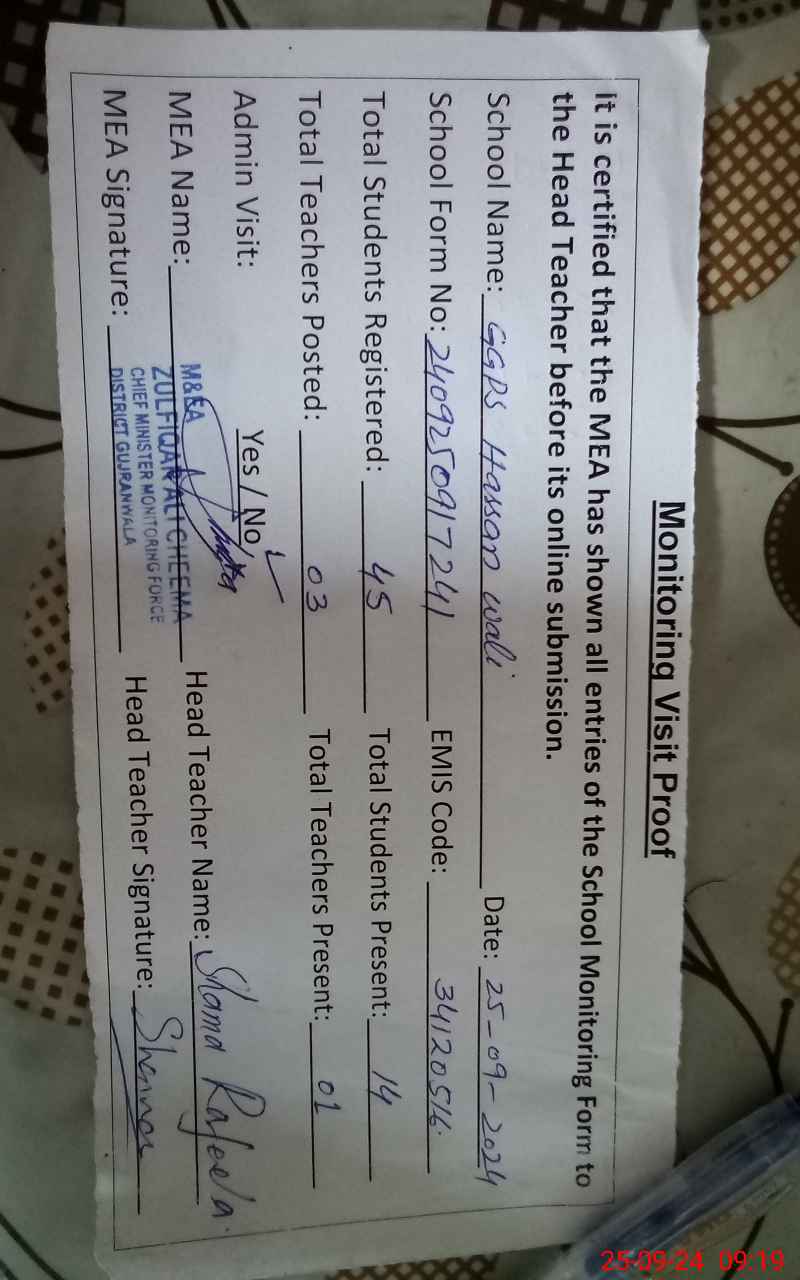 Monitoring Visit Proof
It is certified that the MEA has shown all entries of the School Monitoring Form to
the Head Teacher before its online submission.
School Name: GGPS Hassan wali Date: 25-09-2024
School Form No: 2409250917241 EMIS Code: 34120516
Total Students Registered: 45 Total Students Present: 14
Total Teachers Posted: 03 Total Teachers Present: 01
Admin Visit: Yes / No ✓
MEA Name: Head Teacher Name: Shama Rafeela.
M&EA
ZULFIQAR ALI CHEEMA
CHIEF MINISTER MONITORING FORCE
DISTRICT GUJRANWALA
MEA Signature: Head Teacher Signature:
25-09-24 09:19